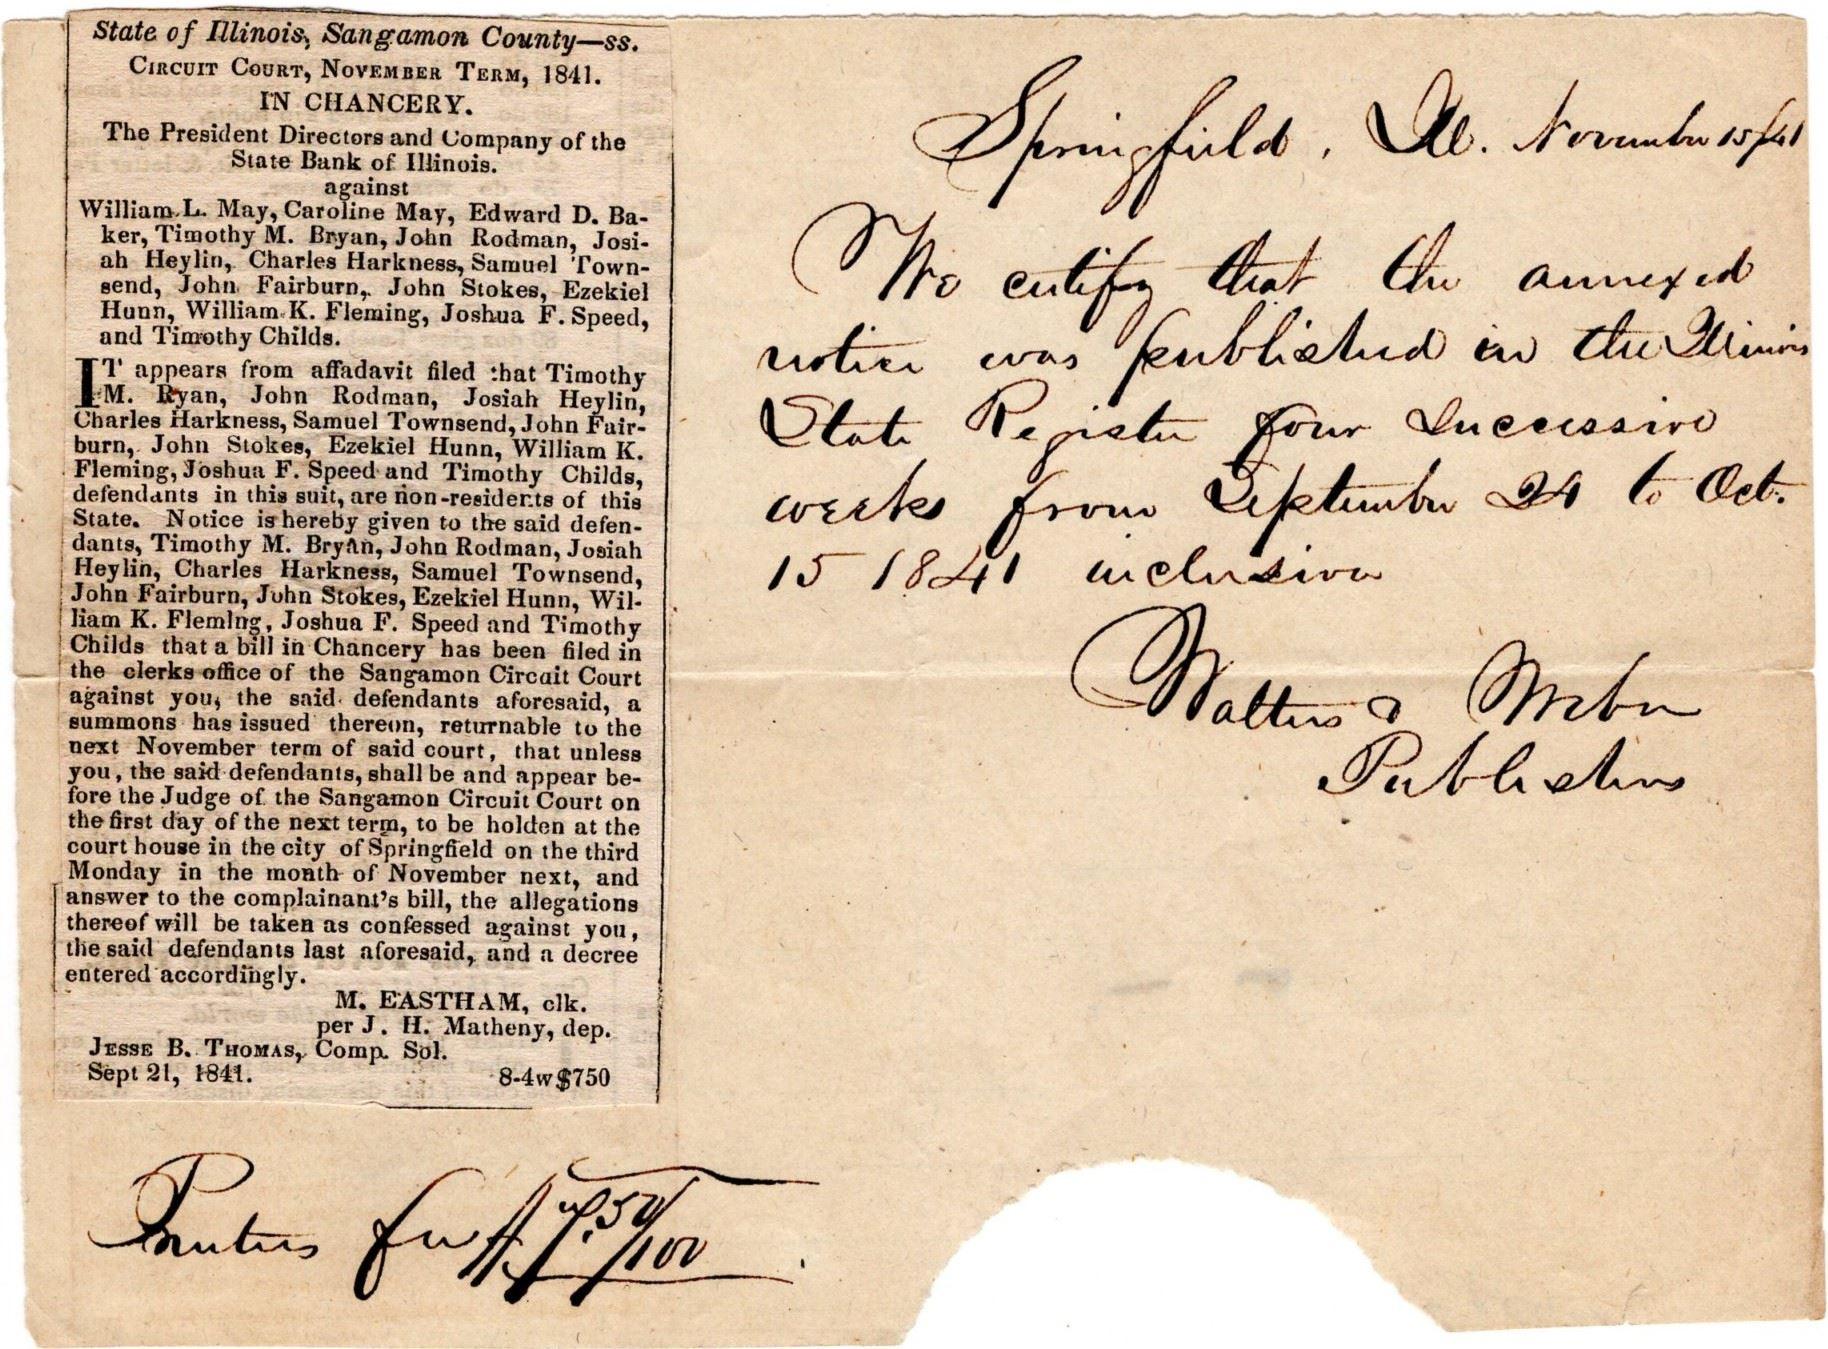 State of Illinois, Sangamon County—ss.
Circuit Court, November Term, 1841.
IN CHANCERY.
The President Directors and Company of the
State Bank of Illinois.
against
William L. May, Caroline May, Edward D. Ba-
ker, Timothy M. Bryan, John Rodman, Josi-
ah Heylin, Charles Harkness, Samuel Town-
send, John Fairburn, John Stokes, Ezekiel
Hunn, William K. Fleming, Joshua F. Speed,
and Timothy Childs.
IT appears from affadavit filed that Timothy
M. Ryan, John Rodman, Josiah Heylin,
Charles Harkness, Samuel Townsend, John Fair-
burn, John Stokes, Ezekiel Hunn, William K.
Fleming, Joshua F. Speed and Timothy Childs,
defendants in this suit, are non-residents of this
State. Notice is hereby given to the said defen-
dants, Timothy M. Bryan, John Rodman, Josiah
Heylin, Charles Harkness, Samuel Townsend,
John Fairburn, John Stokes, Ezekiel Hunn, Wil-
liam K. Fleming, Joshua F. Speed and Timothy
Childs that a bill in Chancery has been filed in
the clerks office of the Sangamon Circuit Court
against you, the said defendants aforesaid, a
summons has issued thereon, returnable to the
next November term of said court, that unless
you, the said defendants, shall be and appear be-
fore the Judge of the Sangamon Circuit Court on
the first day of the next term, to be holden at the
court house in the city of Springfield on the third
Monday in the month of November next, and
answer to the complainant's bill, the allegations
thereof will be taken as confessed against you,
the said defendants last aforesaid, and a decree
entered accordingly.
M. EASTHAM, clk.
per J. H. Matheny, dep.
Jesse B. Thomas, Comp. Sol.
Sept 21, 1841. 8-4w$750
Printers fee $7.50/100
Springfield, Ill. November 15/41
We certify that the annexed
notice was published in the Illinois
State Register four successive
weeks from September 24 to Oct.
15 1841 inclusive
Walters & Weber
Publishers